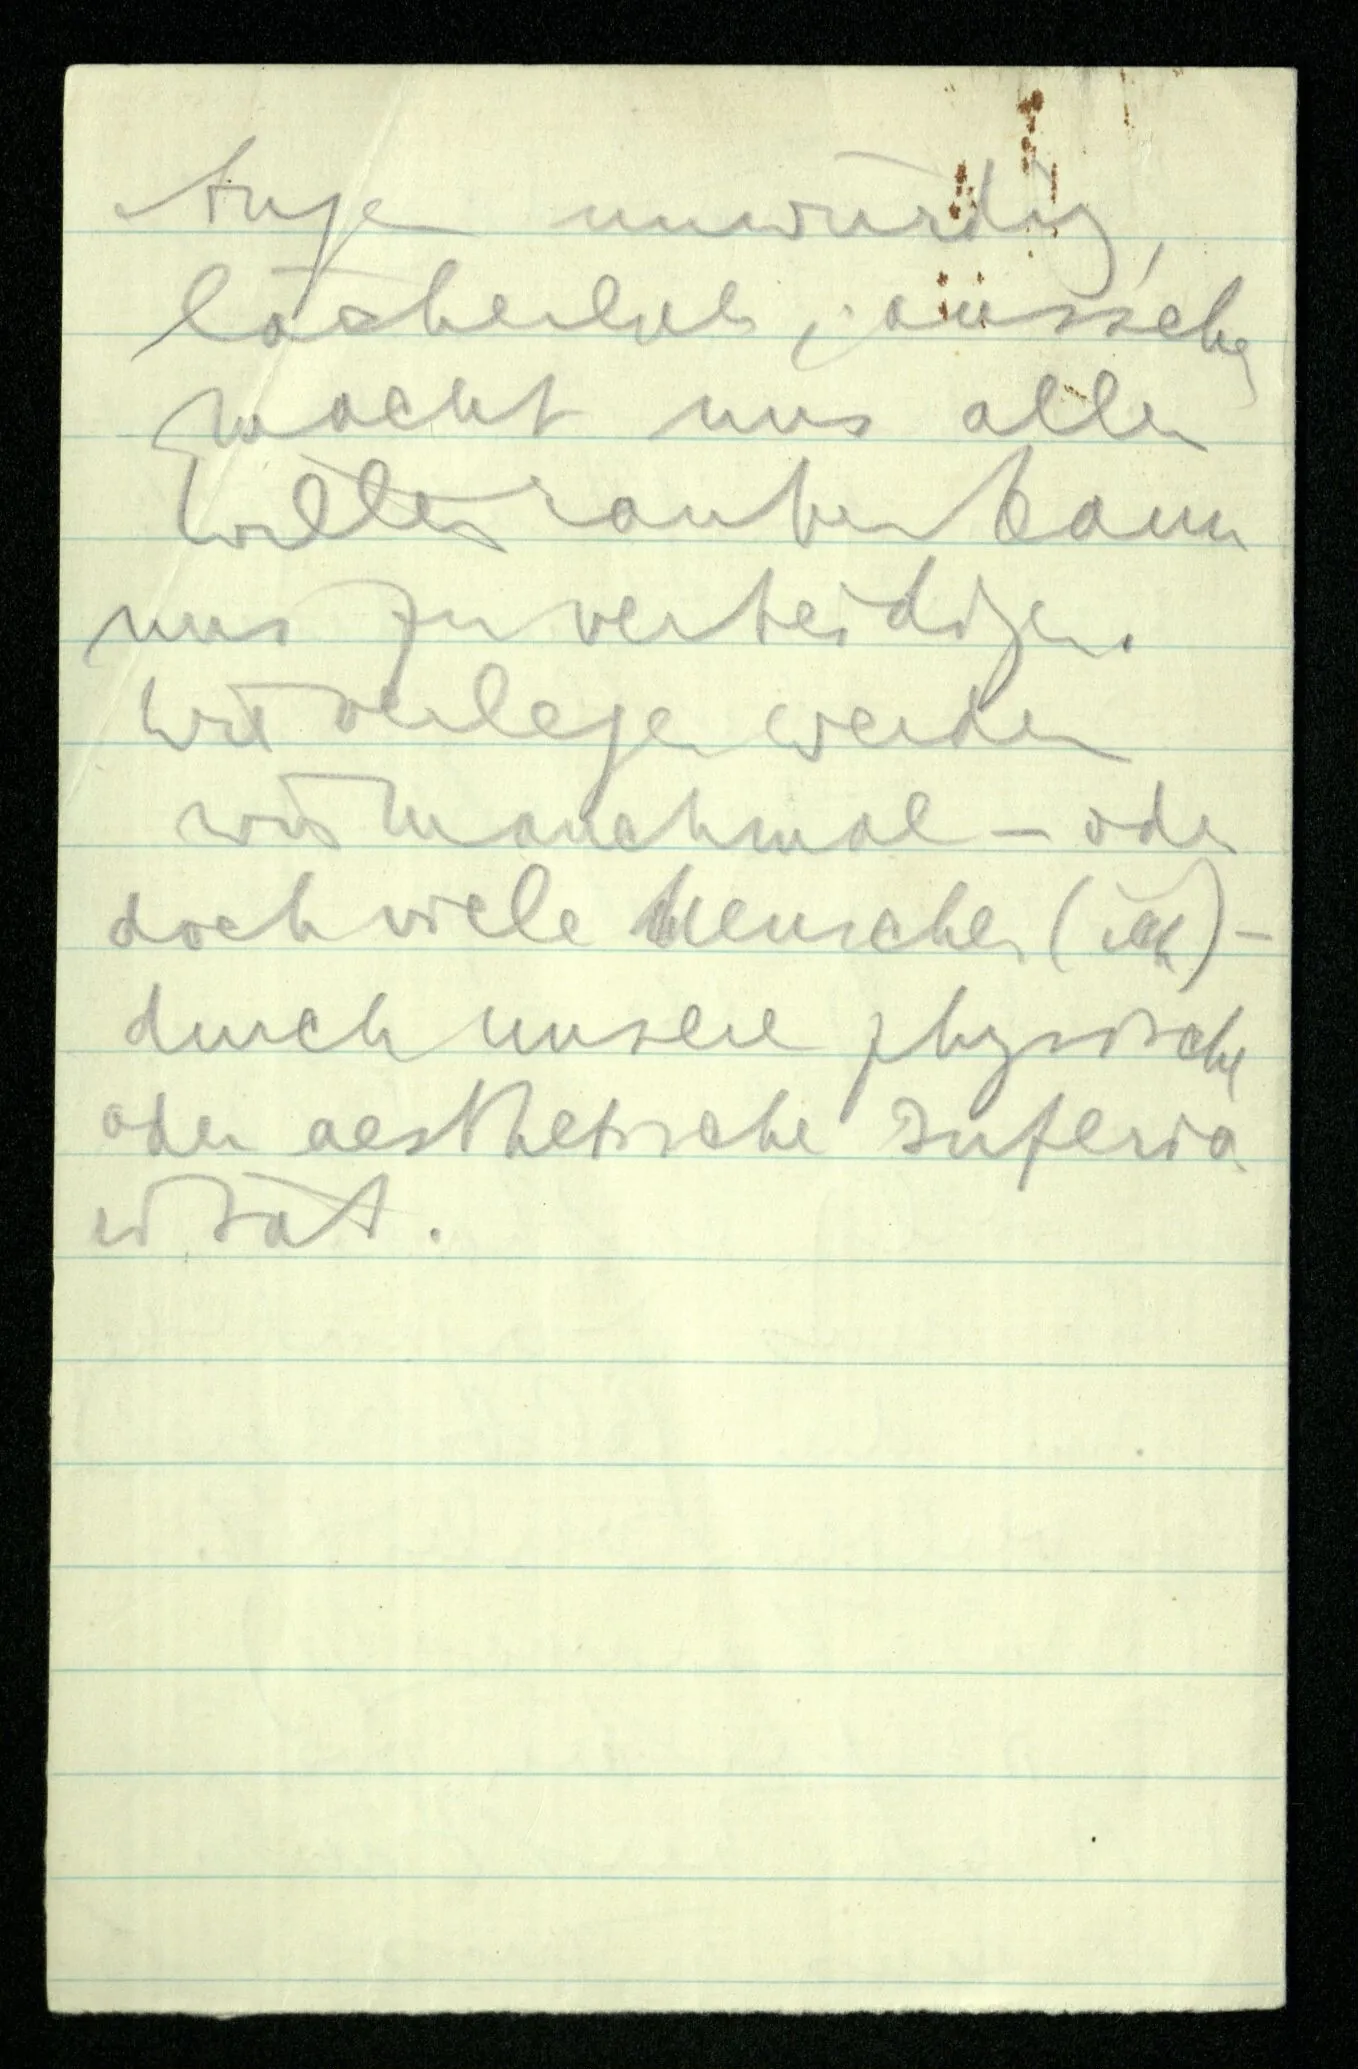 Augen unwürdig,
lächerlich, aussehen
macht uns allen
Willen rauben kann
uns zu verteidigen.
Wie verlegen werden
wir manchmal – oder
doch viele Menschen (ich) –
durch unsere physische
oder aesthetische Inferio
rität.